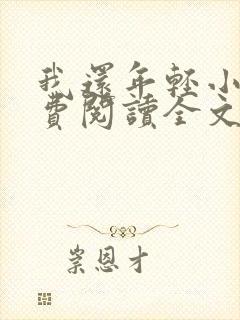 我還年輕小
費閱讀全文
崇恩才